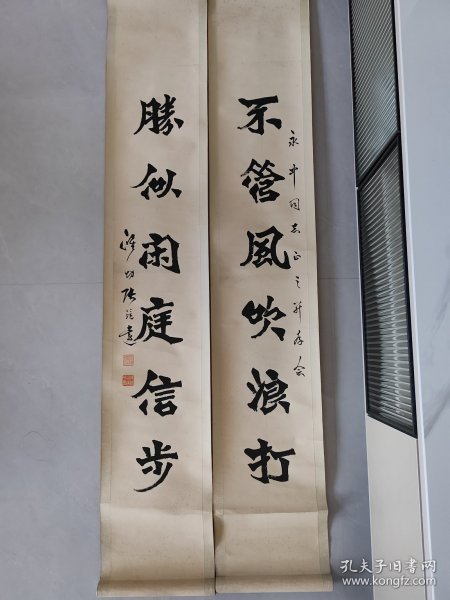 不管風吹浪打
永中同志正之并存念
勝似闲庭信步
孔夫子旧书网
www.kongfz.com